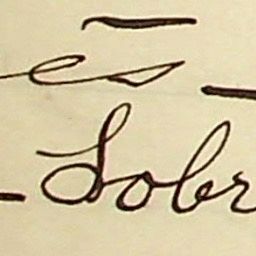 es
Sobr